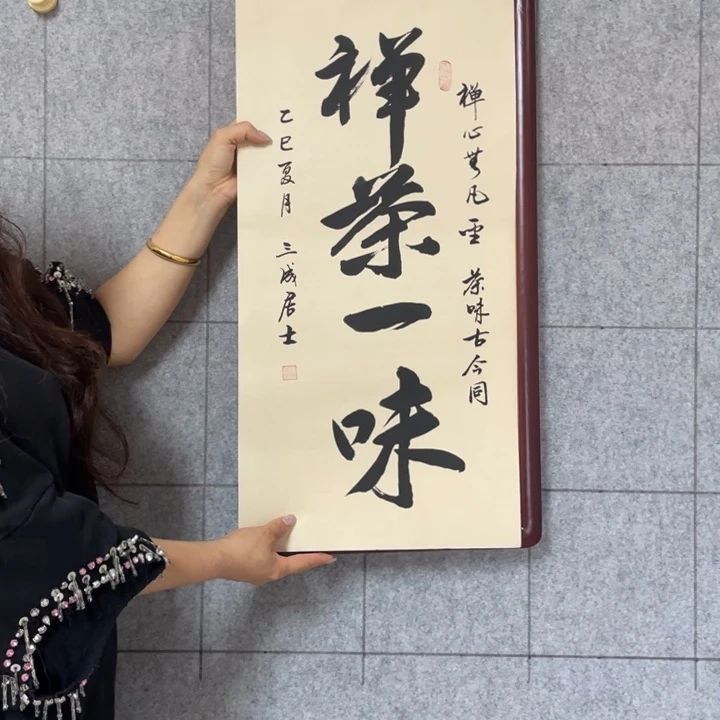 禅心無凡聖 茶味古今同
禅茶一味
乙巳夏月 三成居士